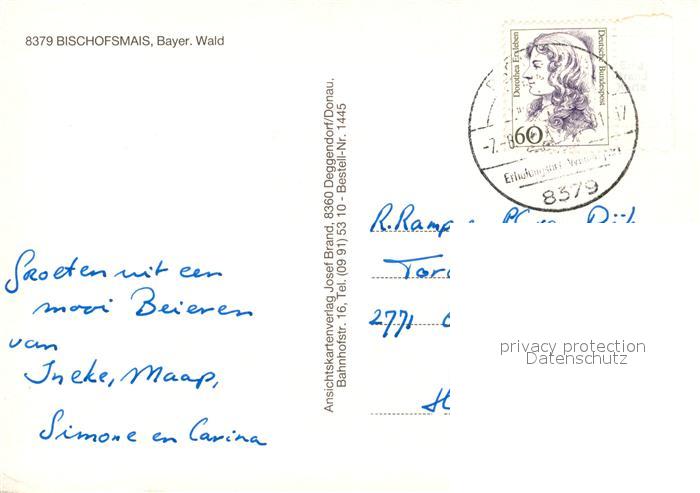 8379 BISCHOFSMAIS, Bayer. Wald
Dorothea Erxleben
Deutsche Bundespost
60
-7.-8
Erholungsort
8379
Ansichtskartenverlag Josef Brand, 8360 Deggendorf/Donau,
Bahnhofstr. 16, Tel. (09 91) 53 10 - Bestell-Nr. 1445
Groeten uit een
mooi Beieren
van
Ineke, Maap,
Simone en Carina
R. Ramp
Tor
2771
H
privacy protection
Datenschutz